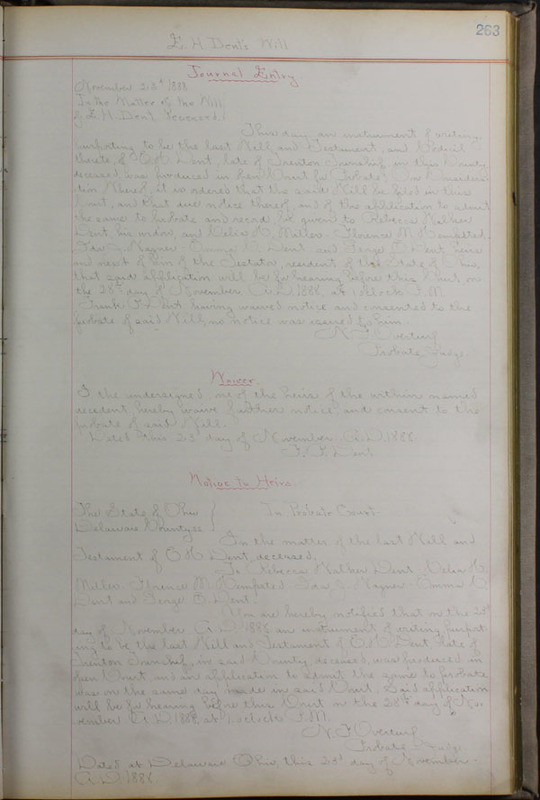 263
E. H. Dent's Will
Journal Entry
November 23d 1888
In the Matter of the Will
of E. H. Dent, Deceased.
This day an instrument of writing,
purporting to be the last Will and Testament, and Codicil
thereto, of Dent, late of Trenton Township, in this County,
deceased, was produced in open Court for Probate.
Whereof, it is ordered that the said Will be filed in this
Court, and that due notice thereof, and of the application to admit
the same to probate and record be given to Rebecca Walker
Dent his widow, and Delia H. Miller, Florence M. Bumpsted,
Wagner, Dent and George B. Dent heirs
and next of kin of the Testator, resident of the State of Ohio,
that said application will be for hearing before this Court, on
the 28th day of November A.D. 1888, at o'clock P.M.
Dent having waived notice and consented to the
probate of said Will, no notice was issued to him.
N. F. Overturf
Probate Judge.
Waiver
I the undersigned, one of the heirs of the within named
decedent, hereby waive further notice and consent to the
probate of said Will.
Dated this 23d day of November A.D. 1888.
Dent
Notice to Heirs
The State of Ohio
Delaware County ss
In Probate Court
In the matter of the last Will and
Testament of E H Dent, deceased,
To Rebecca Walker Dent, Delia H.
Miller, Florence M. Bumpsted, Wagner, Emma
Dent and George B. Dent.
You are hereby notified that on the 23d
day of November A.D. 1888 an instrument of writing purport-
ing to be the last Will and Testament of Dent late of
Trenton Township, in said County, deceased, was produced in
open Court and an application to admit the same to probate
was on the same day made in said Court. Said application
will be for hearing before this Court on the 28th day of Nov-
ember A.D. 1888, at o'clock P.M.
N. F. Overturf
Probate Judge
Dated at Delaware Ohio, this 23d day of November
A.D. 1888